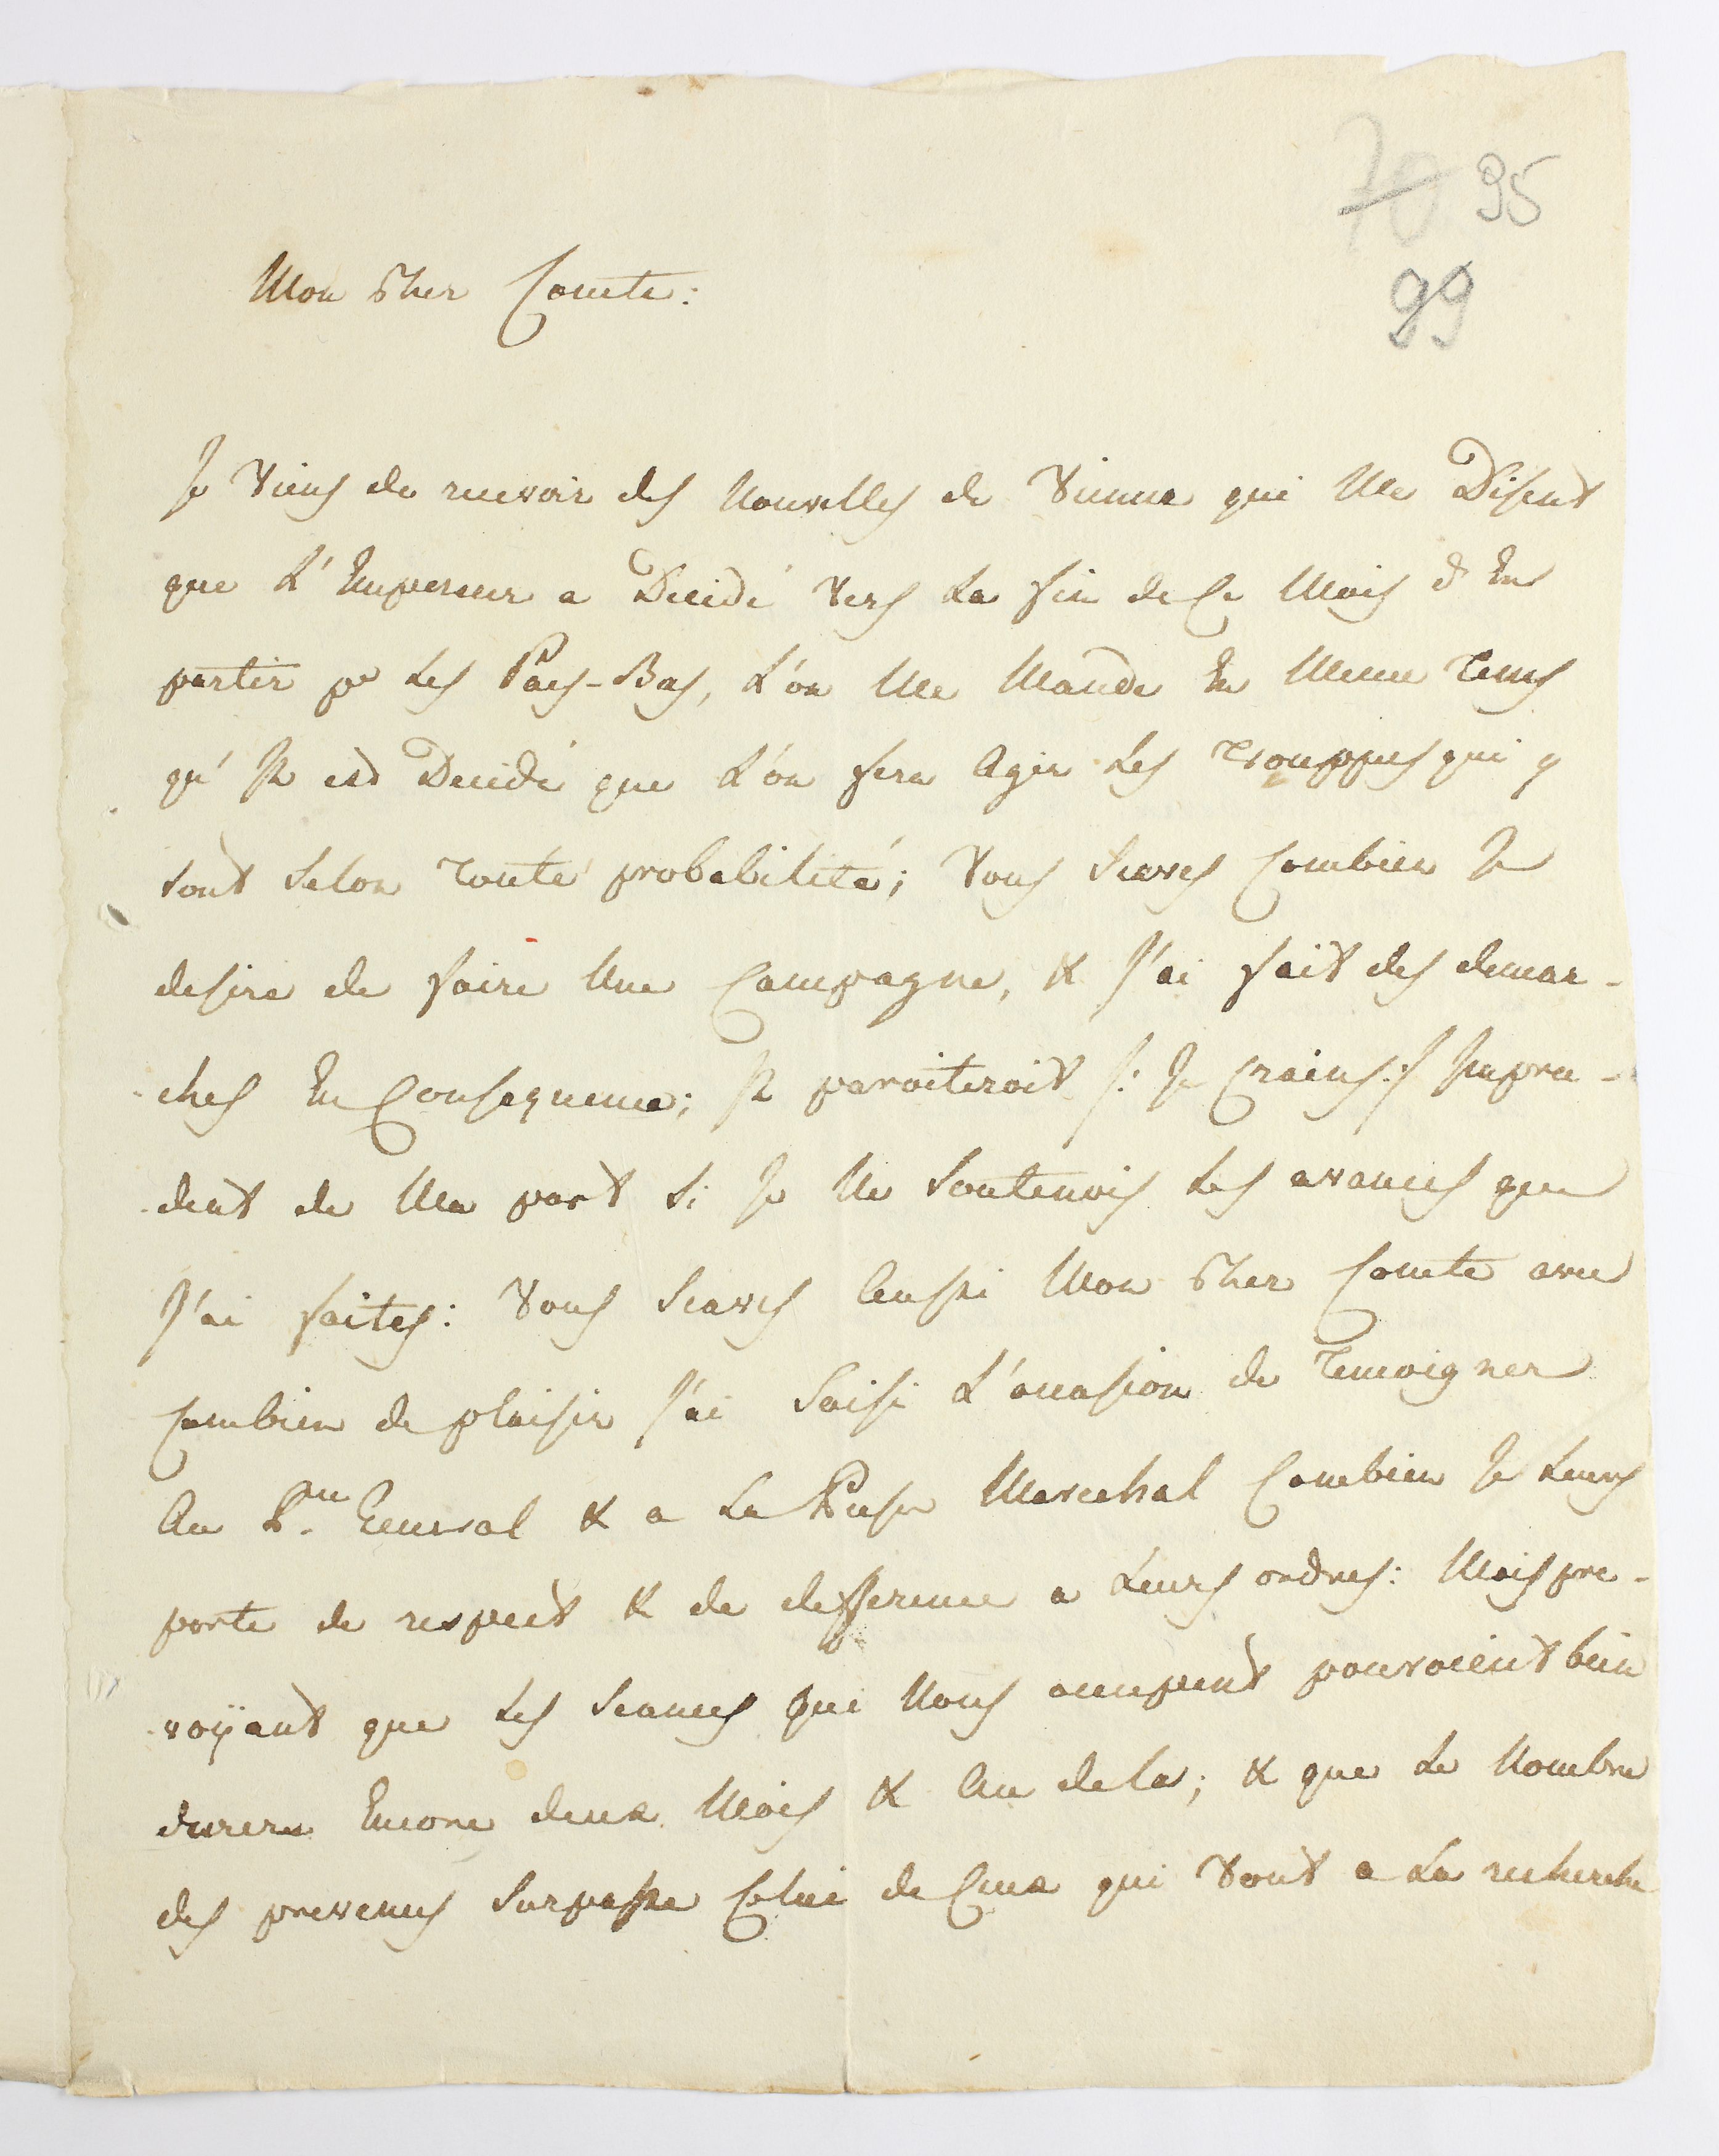 70 95
99
Mon Cher Comte:
Je Viens de recevoir des Nouvelles de Vienne qui Me Disent
que L'Empereur a Décidé Vers La fin de Ce Mois d'En
partir pr Les Païs-Bas, L'on Me Mande En Meme Tems
qu'Il est Decidé que L'on fera Agir Les Trouppes qui y
sont Selon Toute probabilité; Vous Scavés Combien Je
desire de faire Une Campagne, & J'ai fait des demar-
ches En Consequence; Il paroiteroit /: Je Crains :/ Impru-
dent de Ma part Si Je Ne Soutenois Les avances que
J'ai faites: Vous Scavés Aussi Mon Cher Comte avec
Combien de plaisir J'ai Saisi L'occasion de Temoigner
Au General & a Le Marechal Combien Je Leurs
porte de respect & de defference a Leurs ordres: Mais pre-
voÿant que Les Seances qui Nous occupent pouroient bien
durere Encore deux Mois & Au dela; & que Le Nombre
des prevenus Surpasse Celui de Ceux qui Vont a La recherche